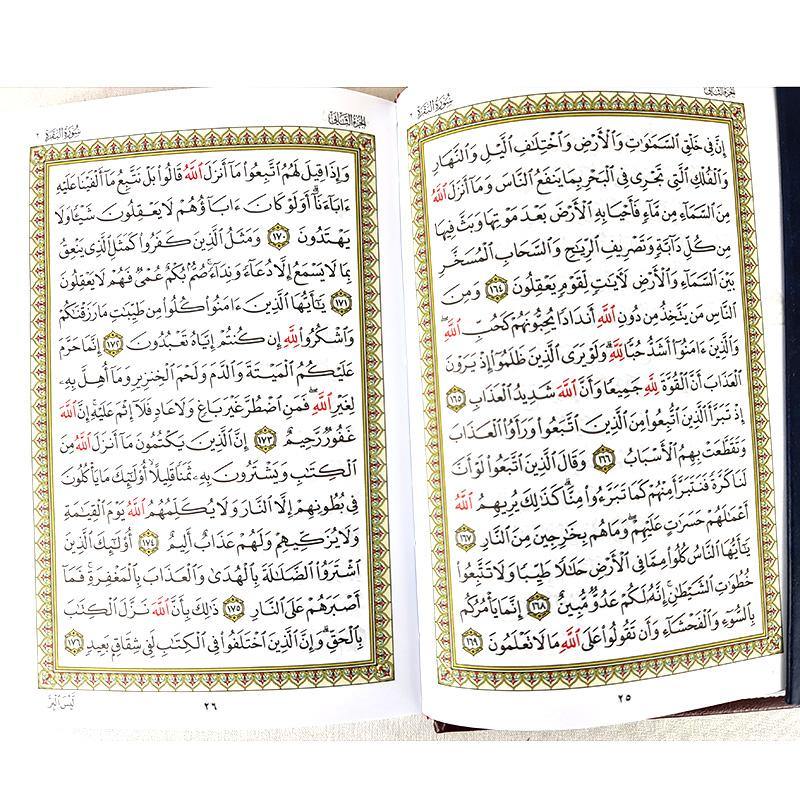 الجزء الثاني
سورة البقرة
إِنَّ فِي خَلْقِ ٱلسَّمَٰوَٰتِ وَٱلْأَرْضِ وَٱخْتِلَٰفِ ٱلَّيْلِ وَٱلنَّهَارِ
وَٱلْفُلْكِ ٱلَّتِي تَجْرِي فِي ٱلْبَحْرِ بِمَا يَنفَعُ ٱلنَّاسَ وَمَآ أَنزَلَ ٱللَّهُ
مِنَ ٱلسَّمَآءِ مِن مَّآءٍ فَأَحْيَا بِهِ ٱلْأَرْضَ بَعْدَ مَوْتِهَا وَبَثَّ فِيهَا
مِن كُلِّ دَآبَّةٍ وَتَصْرِيفِ ٱلرِّيَٰحِ وَٱلسَّحَابِ ٱلْمُسَخَّرِ
بَيْنَ ٱلسَّمَآءِ وَٱلْأَرْضِ لَأٓيَٰتٍ لِّقَوْمٍ يَعْقِلُونَ ١٦٤ وَمِنَ
ٱلنَّاسِ مَن يَتَّخِذُ مِن دُونِ ٱللَّهِ أَندَادًا يُحِبُّونَهُمْ كَحُبِّ ٱللَّهِۖ
وَٱلَّذِينَ ءَامَنُوٓا۟ أَشَدُّ حُبًّا لِّلَّهِۗ وَلَوْ يَرَى ٱلَّذِينَ ظَلَمُوٓا۟ إِذْ يَرَوْنَ
ٱلْعَذَابَ أَنَّ ٱلْقُوَّةَ لِلَّهِ جَمِيعًا وَأَنَّ ٱللَّهَ شَدِيدُ ٱلْعَذَابِ ١٦٥
إِذْ تَبَرَّأَ ٱلَّذِينَ ٱتُّبِعُوا۟ مِنَ ٱلَّذِينَ ٱتَّبَعُوا۟ وَرَأَوُا۟ ٱلْعَذَابَ
وَتَقَطَّعَتْ بِهِمُ ٱلْأَسْبَابُ ١٦٦ وَقَالَ ٱلَّذِينَ ٱتَّبَعُوا۟ لَوْ أَنَّ
لَنَا كَرَّةً فَنَتَبَرَّأَ مِنْهُمْ كَمَا تَبَرَّءُوا۟ مِنَّاۗ كَذَٰلِكَ يُرِيهِمُ ٱللَّهُ
أَعْمَٰلَهُمْ حَسَرَٰتٍ عَلَيْهِمْۖ وَمَا هُم بِخَٰرِجِينَ مِنَ ٱلنَّارِ ١٦٧
يَٰٓأَيُّهَا ٱلنَّاسُ كُلُوا۟ مِمَّا فِي ٱلْأَرْضِ حَلَٰلًا طَيِّبًا وَلَا تَتَّبِعُوا۟
خُطُوَٰتِ ٱلشَّيْطَٰنِۚ إِنَّهُۥ لَكُمْ عَدُوٌّ مُّبِينٌ ١٦٨ إِنَّمَا يَأْمُرُكُم
بِٱلسُّوٓءِ وَٱلْفَحْشَآءِ وَأَن تَقُولُوا۟ عَلَى ٱللَّهِ مَا لَا تَعْلَمُونَ ١٦٩
٢٥
الجزء الثاني
سورة البقرة
وَإِذَا قِيلَ لَهُمُ ٱتَّبِعُوا۟ مَآ أَنزَلَ ٱللَّهُ قَالُوا۟ بَلْ نَتَّبِعُ مَآ أَلْفَيْنَا عَلَيْهِ
ءَابَآءَنَآۗ أَوَلَوْ كَانَ ءَابَآؤُهُمْ لَا يَعْقِلُونَ شَيْـًٔا وَلَا
يَهْتَدُونَ ١٧٠ وَمَثَلُ ٱلَّذِينَ كَفَرُوا۟ كَمَثَلِ ٱلَّذِي يَنْعِقُ
بِمَا لَا يَسْمَعُ إِلَّا دُعَآءً وَنِدَآءًۚ صُمٌّۢ بُكْمٌ عُمْيٌ فَهُمْ لَا يَعْقِلُونَ
١٧١ يَٰٓأَيُّهَا ٱلَّذِينَ ءَامَنُوا۟ كُلُوا۟ مِن طَيِّبَٰتِ مَا رَزَقْنَٰكُمْ
وَٱشْكُرُوا۟ لِلَّهِ إِن كُنتُمْ إِيَّاهُ تَعْبُدُونَ ١٧٢ إِنَّمَا حَرَّمَ
عَلَيْكُمُ ٱلْمَيْتَةَ وَٱلدَّمَ وَلَحْمَ ٱلْخِنزِيرِ وَمَآ أُهِلَّ بِهِۦ
لِغَيْرِ ٱللَّهِۖ فَمَنِ ٱضْطُرَّ غَيْرَ بَاغٍ وَلَا عَادٍ فَلَآ إِثْمَ عَلَيْهِۚ إِنَّ ٱللَّهَ
غَفُورٌ رَّحِيمٌ ١٧٣ إِنَّ ٱلَّذِينَ يَكْتُمُونَ مَآ أَنزَلَ ٱللَّهُ مِنَ
ٱلْكِتَٰبِ وَيَشْتَرُونَ بِهِۦ ثَمَنًا قَلِيلًا أُو۟لَٰٓئِكَ مَا يَأْكُلُونَ
فِي بُطُونِهِمْ إِلَّا ٱلنَّارَ وَلَا يُكَلِّمُهُمُ ٱللَّهُ يَوْمَ ٱلْقِيَٰمَةِ
وَلَا يُزَكِّيهِمْ وَلَهُمْ عَذَابٌ أَلِيمٌ ١٧٤ أُو۟لَٰٓئِكَ ٱلَّذِينَ
ٱشْتَرَوُا۟ ٱلضَّلَٰلَةَ بِٱلْهُدَىٰ وَٱلْعَذَابَ بِٱلْمَغْفِرَةِۚ فَمَآ
أَصْبَرَهُمْ عَلَى ٱلنَّارِ ١٧٥ ذَٰلِكَ بِأَنَّ ٱللَّهَ نَزَّلَ ٱلْكِتَٰبَ
بِٱلْحَقِّۗ وَإِنَّ ٱلَّذِينَ ٱخْتَلَفُوا۟ فِي ٱلْكِتَٰبِ لَفِي شِقَاقٍۭ بَعِيدٍ ١٧٦
٢٦
لَّيْسَ ٱلْبِرَّ